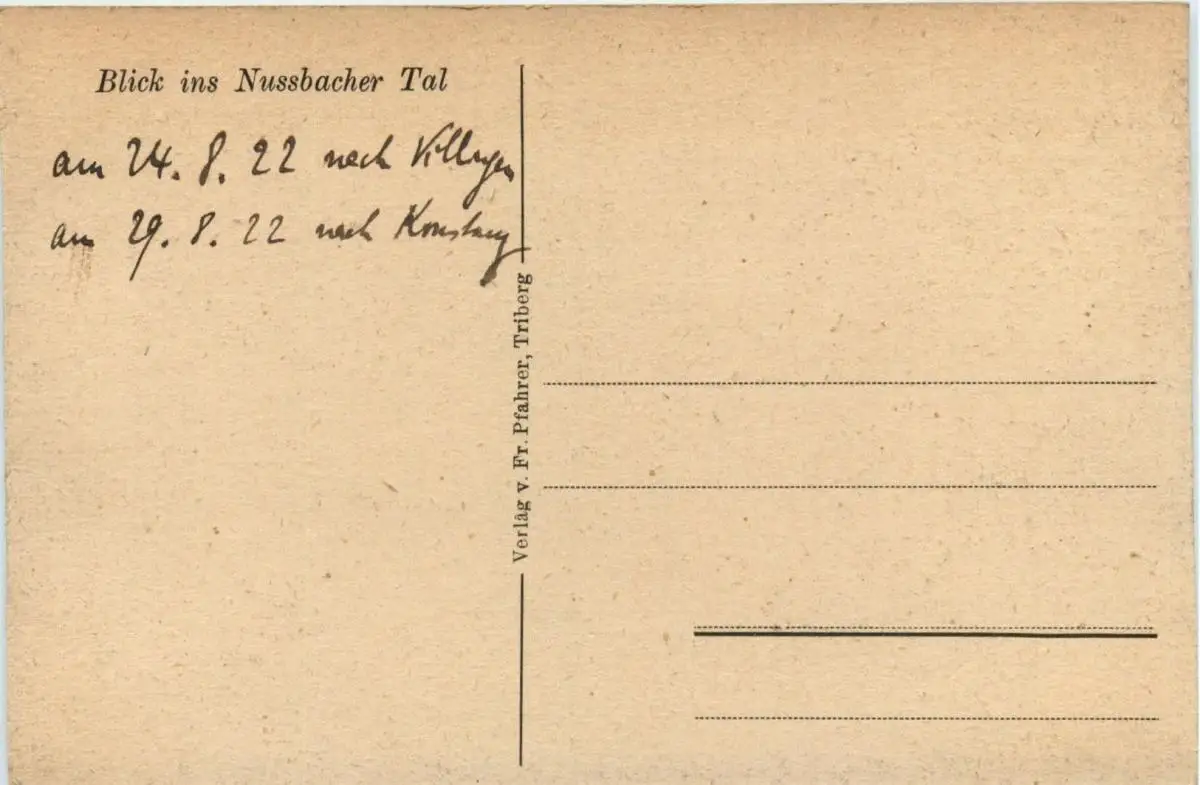 Blick ins Nussbacher Tal
am 24. 8. 22 nach Villingen
am 29. 8. 22 nach Konstanz
Verlag v. Fr. Pfahrer, Triberg